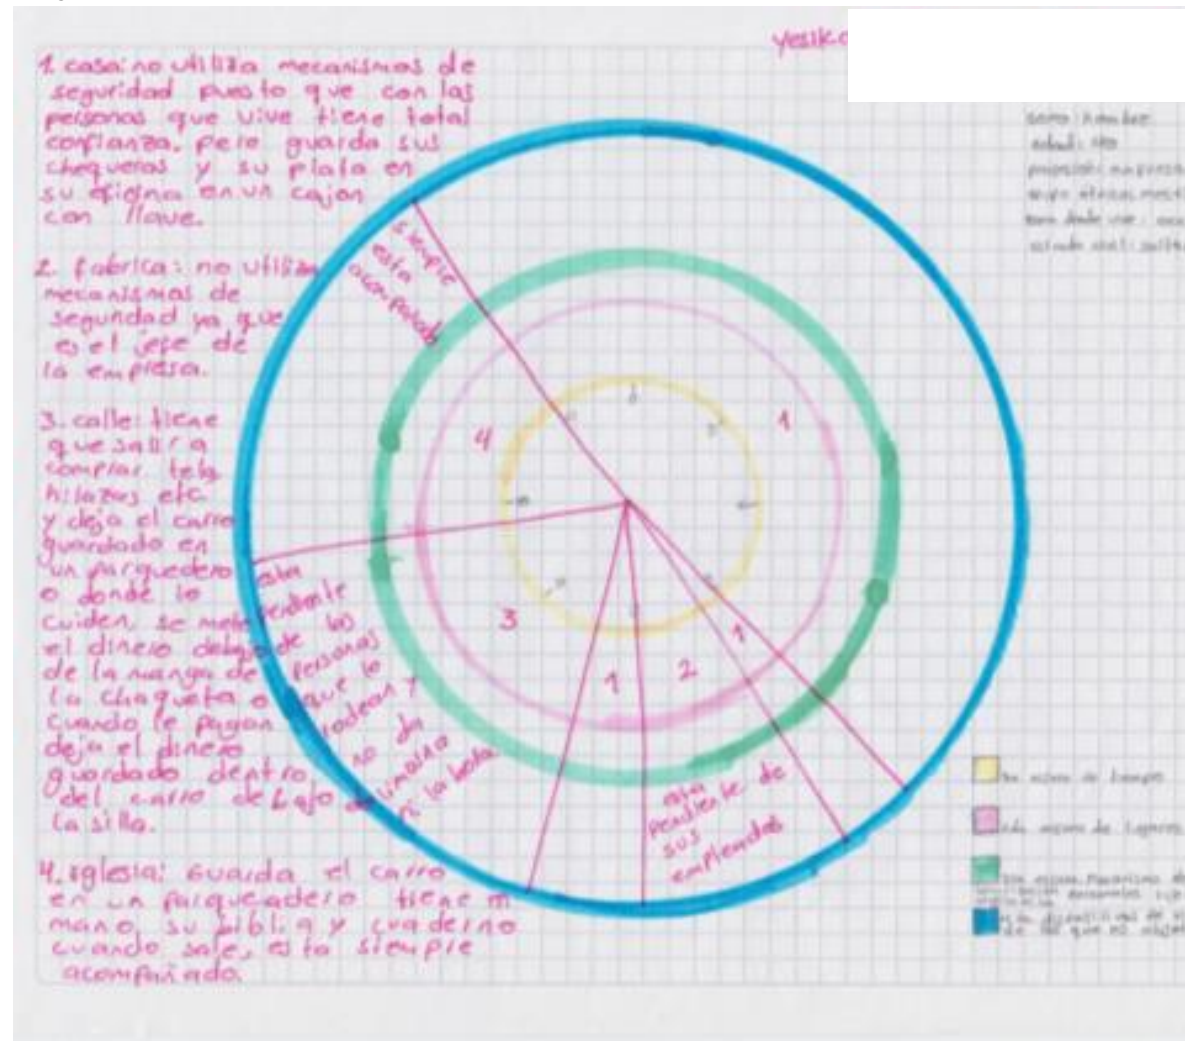 1. casa: no utiliza mecanismos de
seguridad puesto que con las
personas que vive tiene total
confianza, pero guarda sus
chequeras y su plata en
su oficina en un cajon
con llave.
2. fabrica: no utiliza
mecanismos de
seguridad ya que
es el jefe de
la empresa.
3. calle: tiene
que salir a
comprar tela
hilazas etc.
y deja el carro
guardado en
un parquedero
o donde lo
cuiden, se mete
el dinero debajo
de la manga de
la chaqueta o
cuando le pagan
deja el dinero
guardado dentro
del carro debajo
la silla.
4. iglesia: Guarda el carro
en un parqueadero tiene
mano su biblia y cuaderno
cuando sale, esta siempre
acompañado.
siempre
esta
acompañado
1
4
3
1
2
1
esta
pendiente
de las
personas
que lo
rodean y
no da
limosna
ni la hora
esta
pendiente de
sus
empleados
sexo: hombre
edad:
estado civil: